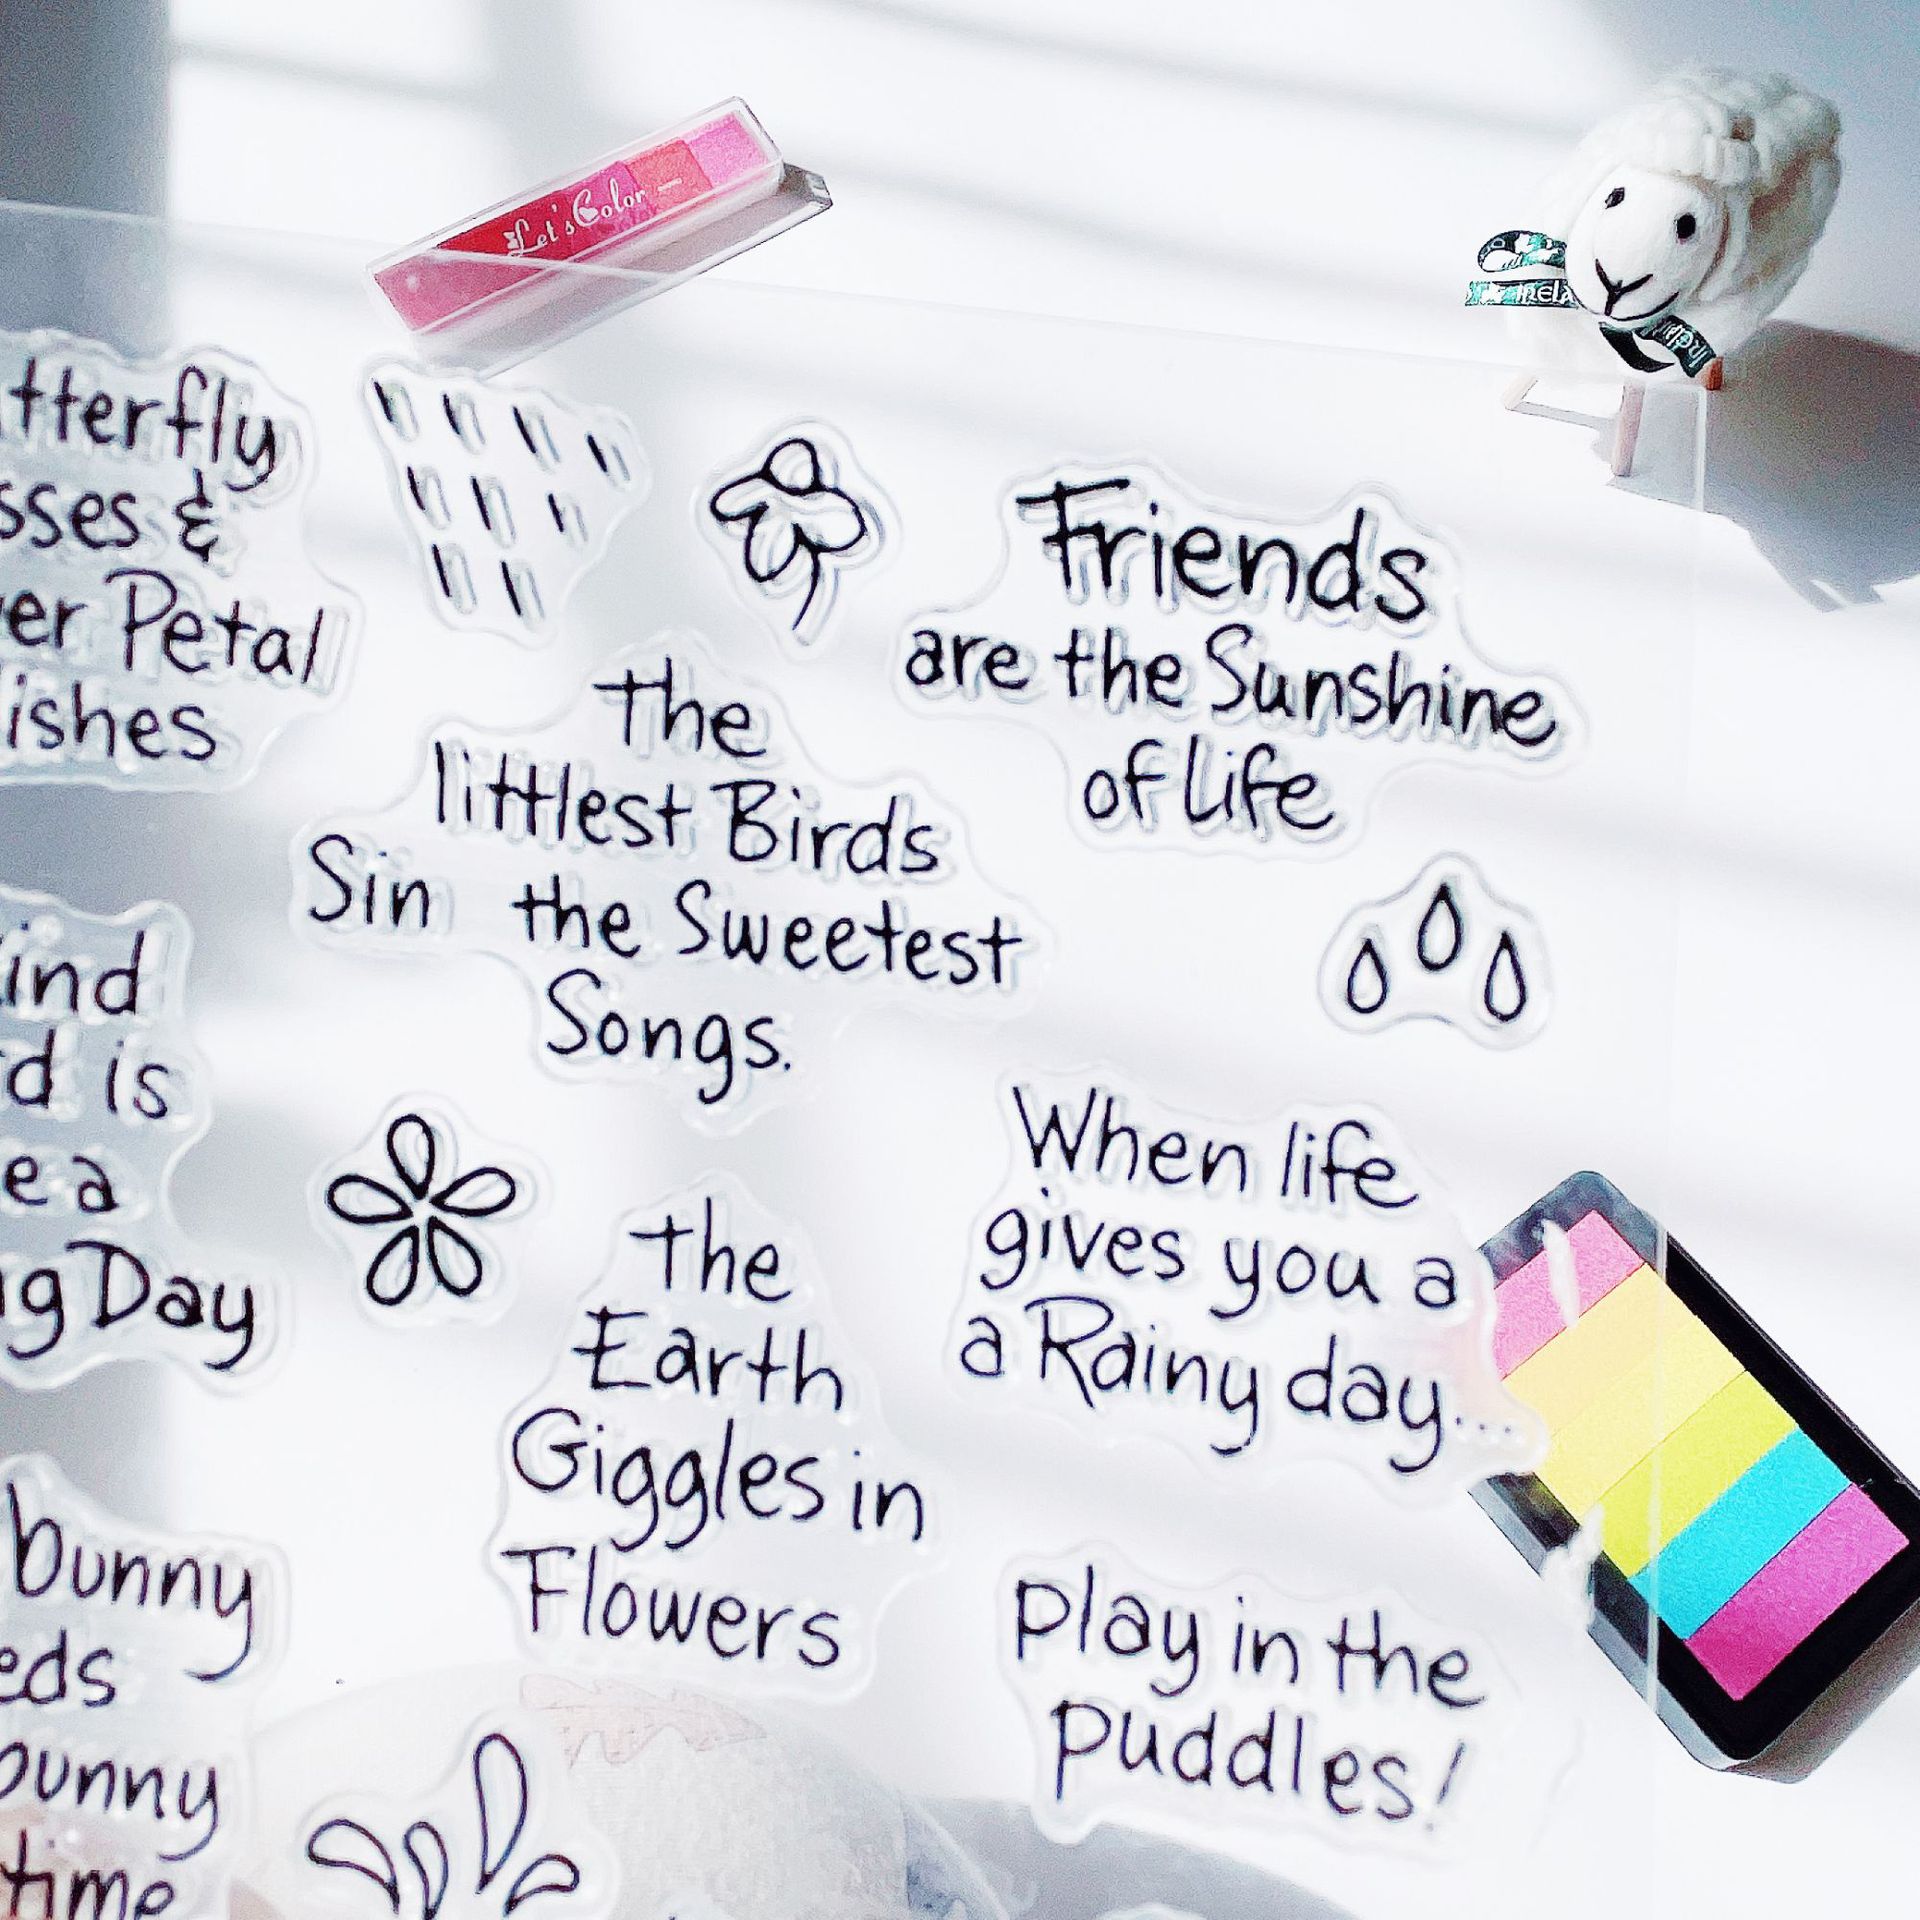 Let's Color
tterfly
sses &
er Petal
ishes
the
littlest Birds
Sin the Sweetest
Songs.
Friends
are the Sunshine
of life
ind
d is
e a
g Day
the
Earth
Giggles in
Flowers
When life
gives you a
a Rainy day...
bunny
eds
bunny
time
play in the
puddles!